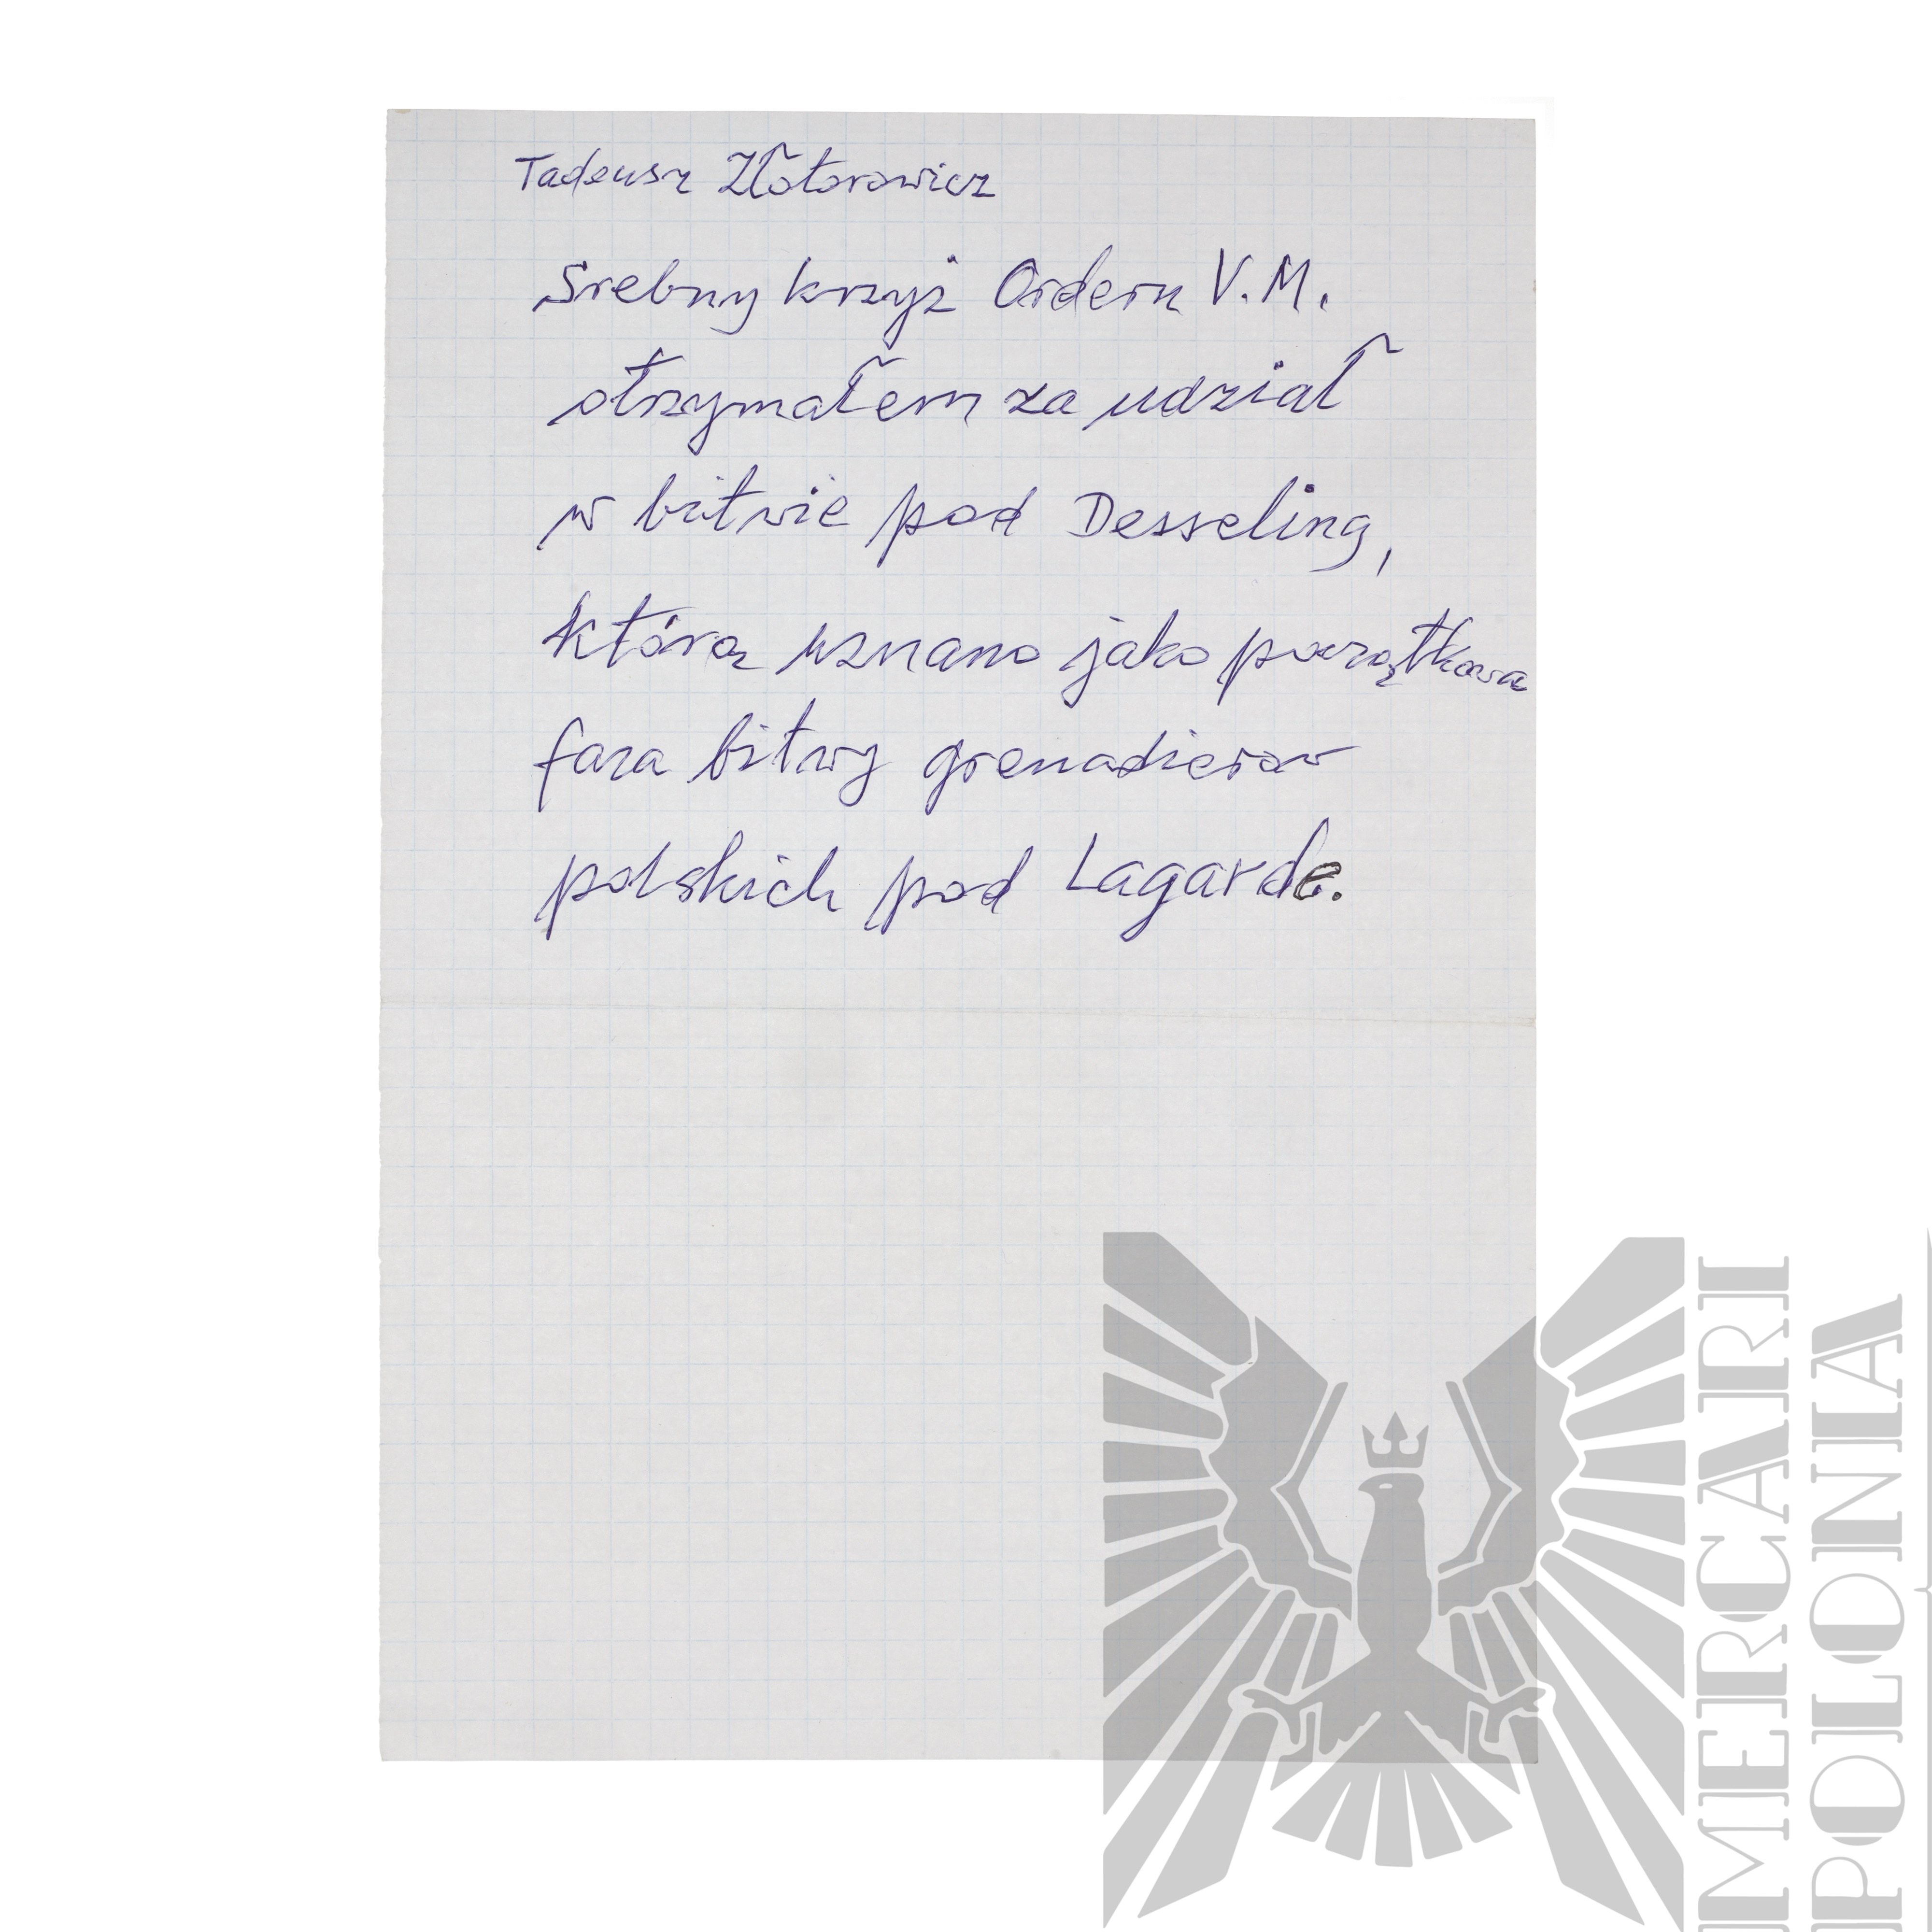 Tadeusz Złotorowicz
Srebny krzyż Orderu V.M.
otrzymałem za udział
w bitwie pod Desseling,
którą uznano jako początkowa
faza bitwy grenadierow
polskich pod Lagarde.
MERCARI
POLONIA